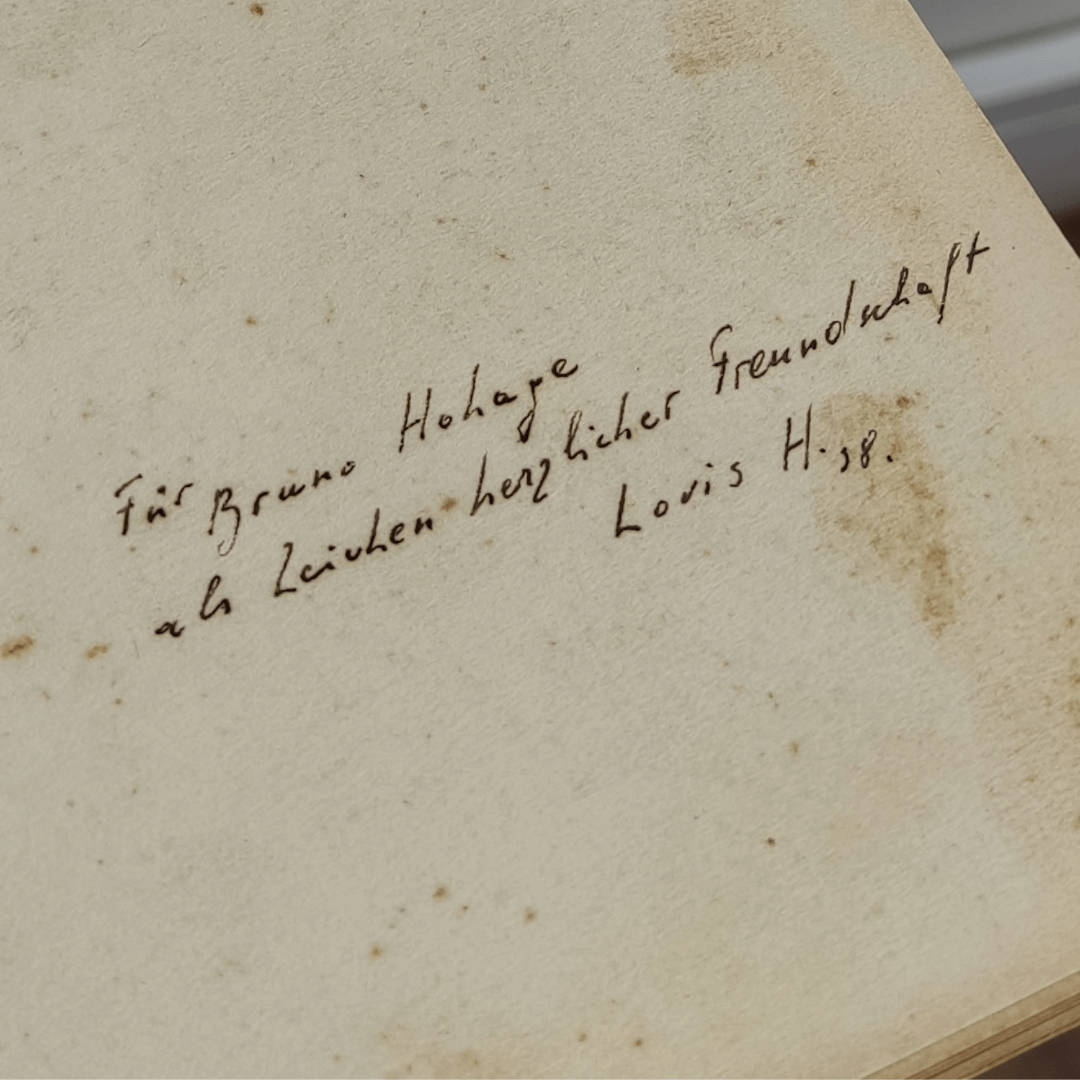 Für Bruno Hohage
als Zeichen herzlicher Freundschaft
Louis H. 38.